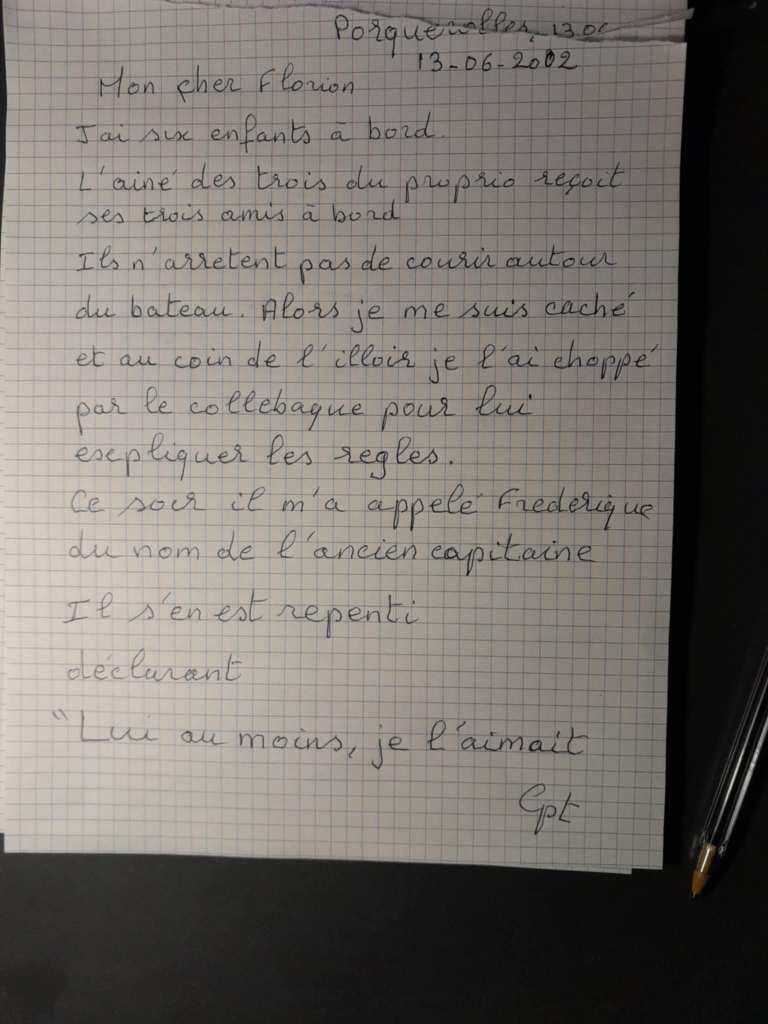 13-06-2002
Mon cher Florion
J'ai six enfants à bord.
L'ainé des trois du proprio reçoit
ses trois amis à bord
Ils n'arretent pas de courir autour
du bateau. Alors je me suis caché
et au coin de l'illoir je l'ai choppé
par le collebaque pour lui
expliquer les regles.
Ce soir il m'a appelé Frederique
du nom de l'ancien capitaine
Il s'en est repenti
déclarant
"Lui au moins, je l'aimait
Cpt